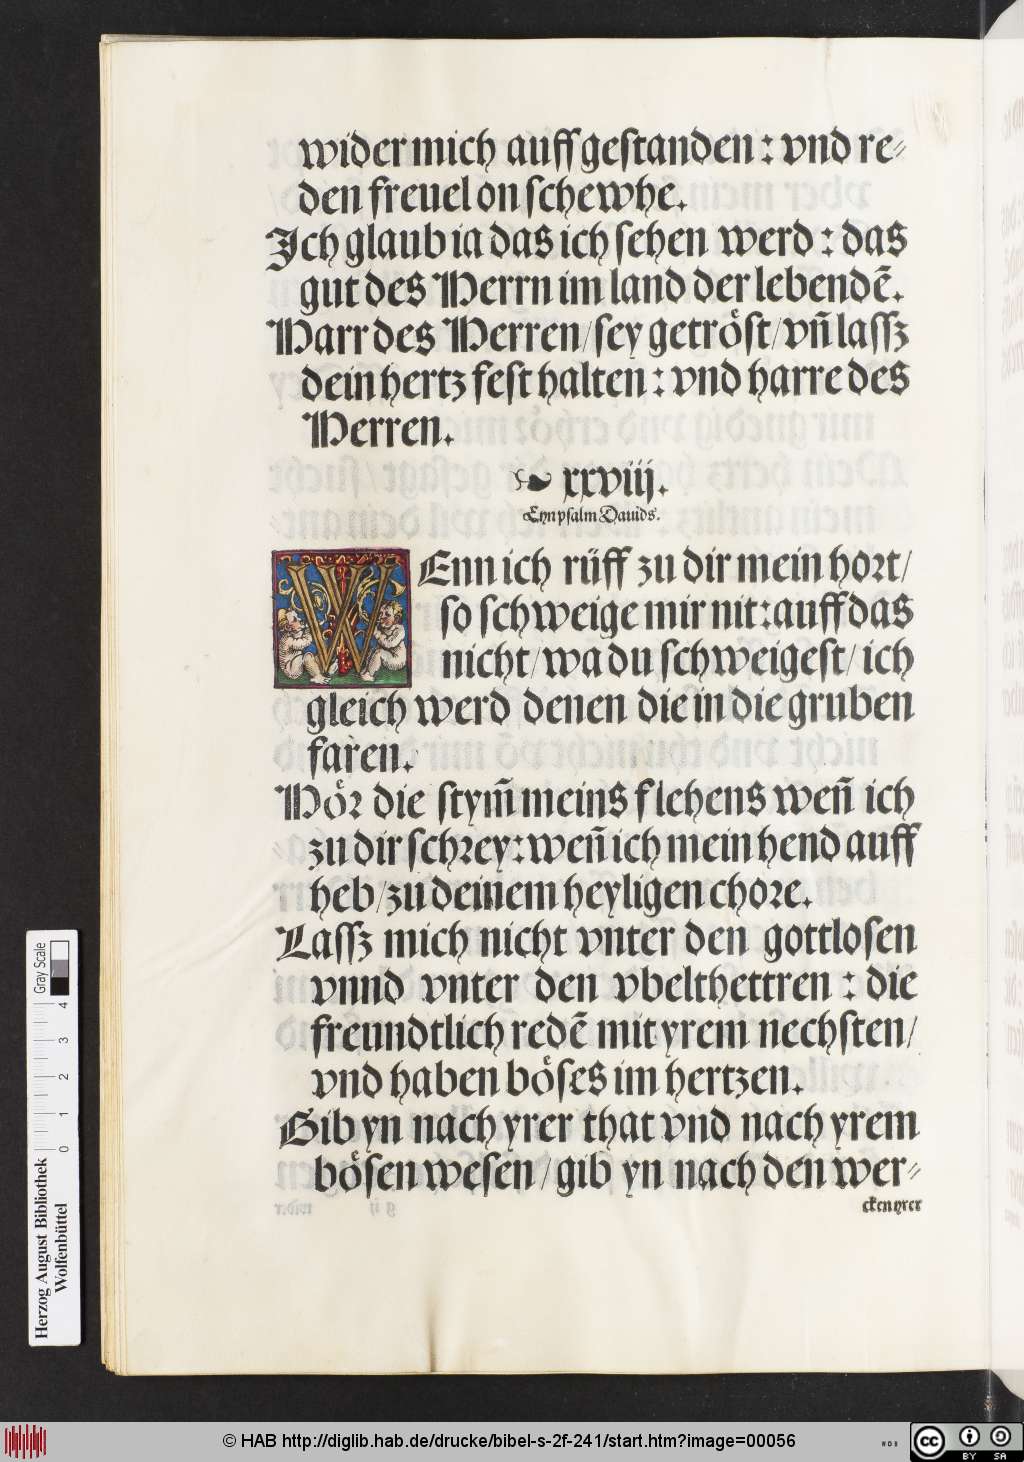 wider mich auff gestanden : vnd re⸗
den freuel on schewhe.
Ich glaub ia das ich sehen werd : das
gut des Herrn im land der lebendē.
Harr des Herren/sey getröst/vn̄ lassz
dein hertz fest halten : vnd harre des
Herren.
xxviij.
Eyn psalm Dauids.
WEnn ich rüff zu dir mein hort/
so schweige mir nit : auff das
nicht/wa du schweigest/ich
gleich werd denen die in die gruben
faren.
Hör die stym̄ meins flehens wen̄ ich
zu dir schrey : wen̄ ich mein hend auff
heb/zu deinem heyligen chore.
Lassz mich nicht vnter den gottlosen
vnnd vnter den vbelthettren : die
freundtlich redē mit yrem nechsten/
vnd haben böses im hertzen.
Gib yn nach yrer that vnd nach yrem
bösen wesen/gib yn nach den wer⸗
cken yrer
Herzog August Bibliothek
Wolfenbüttel
0 1 2 3 4
Gray Scale
© HAB http://diglib.hab.de/drucke/bibel-s-2f-241/start.htm?image=00056
WDB
cc
BY SA